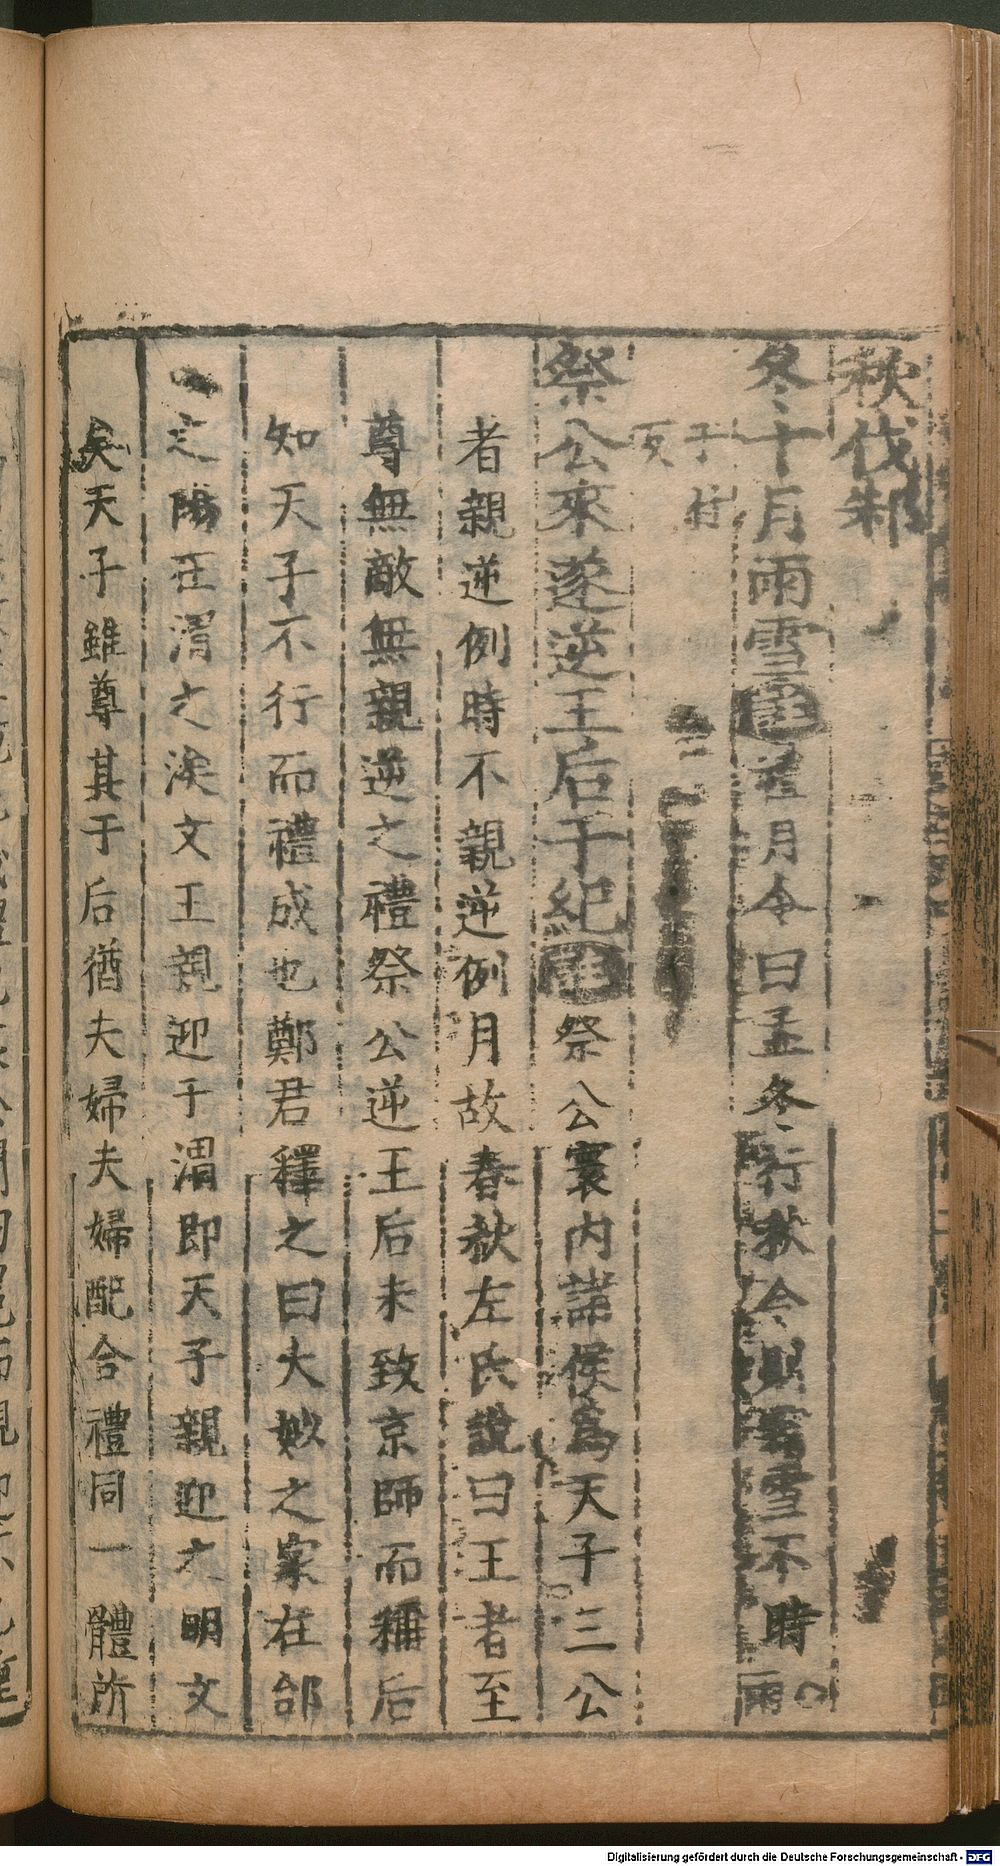 秋伐邾
冬十月雨雪註䓁月令曰孟冬行秋令則霜雪不時雨
于付
反
祭公來遂逆王后于紀註祭公寰内諸侯爲天子三公
者親逆例時不親逆例月故春秋左氏說曰王者至
尊無敵無親逆之禮祭公逆王后未致京師而稱后
知天子不行而禮成也鄭君釋之曰大姒之家在郃
之陽在渭之涘文王親迎于渭即天子親迎之明文
矣天子雖尊其于后猶夫婦夫婦配合禮同一體所
Digitalisierung gefördert durch die Deutsche Forschungsgemeinschaft - DFG